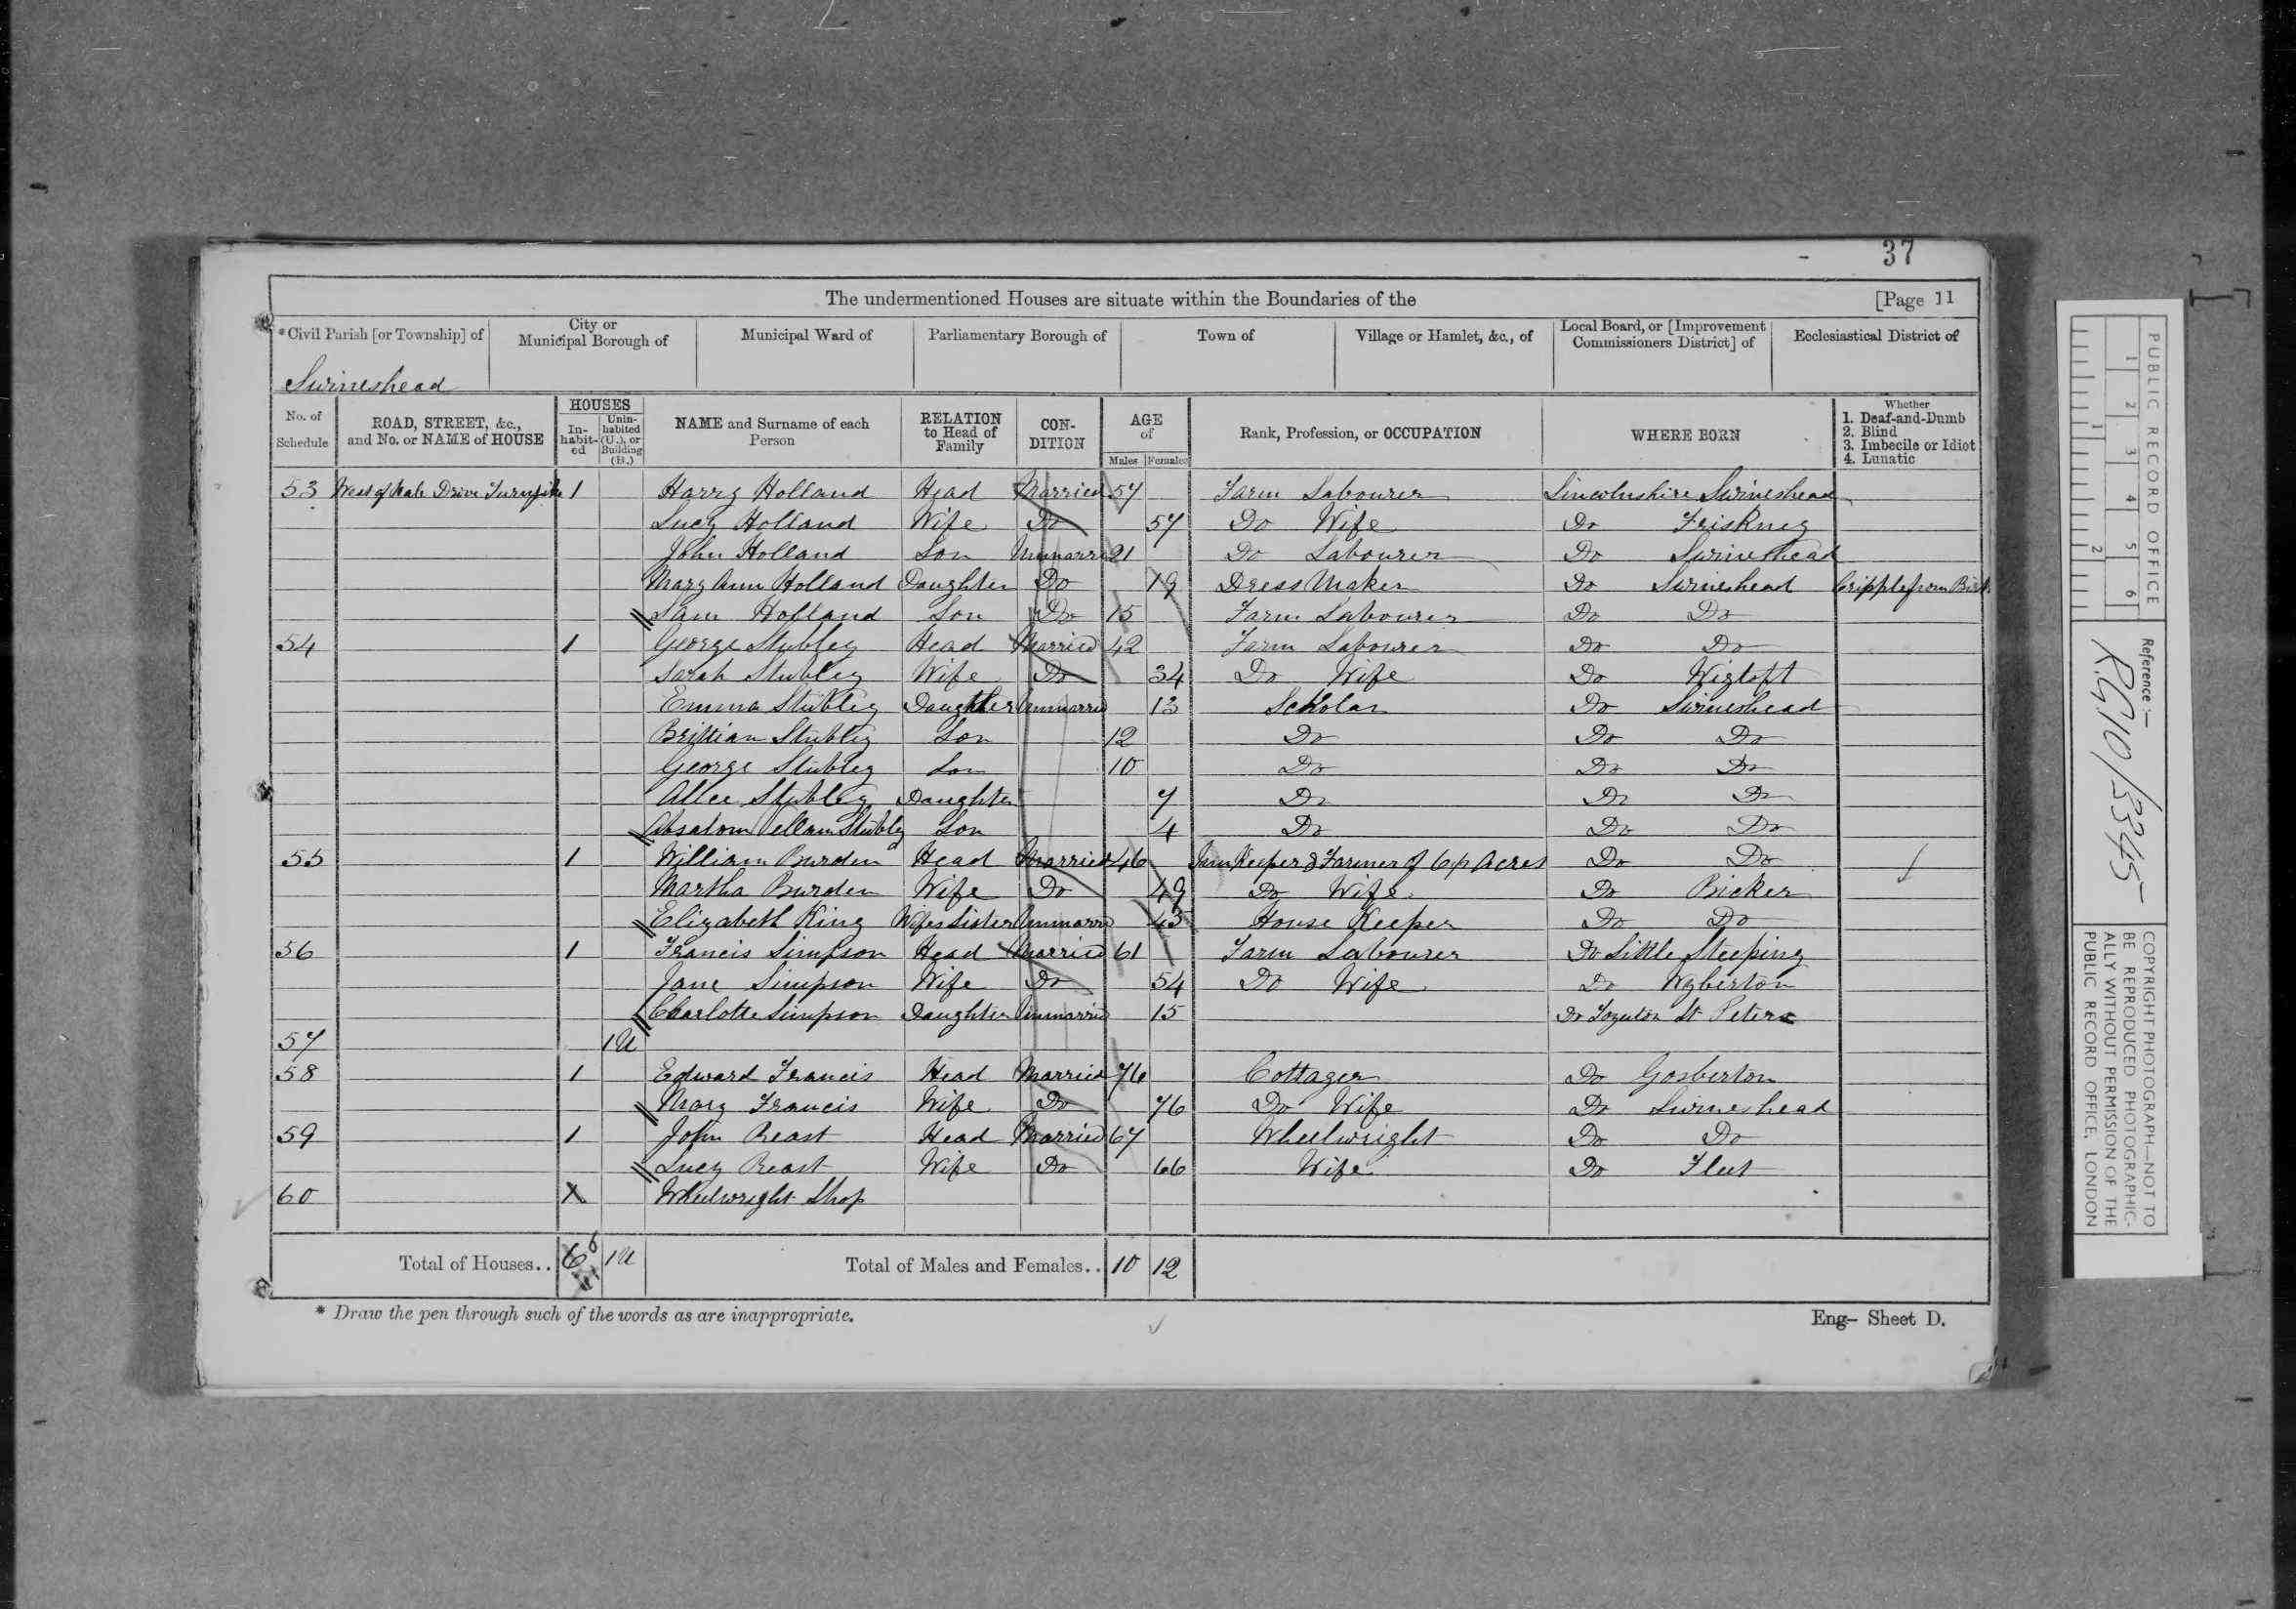 37
The undermentioned Houses are situate within the Boundaries of the [Page 11
*Civil Parish [or Township] of City or Municipal Borough of Municipal Ward of Parliamentary Borough of Town of Village or Hamlet, &c., of Local Board, or [Improvement Commissioners District] of Ecclesiastical District of
Swineshead
No. of Schedule ROAD, STREET, &c., and No. or NAME of HOUSE HOUSES Inhabited Uninhabited (U.), or Building (B.) NAME and Surname of each Person RELATION to Head of Family CONDITION AGE of Males Females Rank, Profession, or OCCUPATION WHERE BORN Whether 1. Deaf-and-Dumb 2. Blind 3. Imbecile or Idiot 4. Lunatic
53 West of Drive Turnpike 1 Harry Holland Head Married 57 Farm Labourer Lincolnshire Swineshead
Lucy Holland Wife Do 57 Do Wife Do Friskney
John Holland Son Unmarri 21 Do Labourer Do Swineshead
Mary Ann Holland Daughter Do 19 Dress Maker Do Swineshead Cripple from Birth
Sam Holland Son Do 15 Farm Labourer Do Do
54 1 George Stubley Head Married 42 Farm Labourer Do Do
Sarah Stubley Wife Do 34 Do Wife Do Wigtoft
Emma Stubley Daughter Unmarrid 13 Scholar Do Swineshead
Brittian Stubley Son 12 Do Do Do
George Stubley Son 10 Do Do Do
Allce Stubley Daughter 7 Do Do Do
Absalom Stubley Son 4 Do Do Do
55 1 William Burden Head Married 46 Inn Keeper & Farmer of Acres Do Do
Martha Burden Wife Do 49 Do Wife Do Bicker
Elizabeth King Wifes Sister Unmarrd 43 House Keeper Do Do
56 1 Francis Simpson Head Married 61 Farm Labourer Do Little Steeping
Jane Simpson Wife Do 54 Do Wife Do Wyberton
Charlotte Simpson Daughter Unmarrid 15 Do St Peters
57 1 U
58 1 Edward Francis Head Married 76 Cottager Do Gosberton
Mary Francis Wife Do 76 Do Wife Do Swineshead
59 1 John Beast Head Married 67 Wheelwright Do Do
Lucy Beast Wife Do 66 Wife Do Fleet
60 X Wheelwright Shop
Total of Houses.. 6 6 1 U Total of Males and Females.. 10 12
* Draw the pen through such of the words as are inappropriate. Eng- Sheet D.
PUBLIC RECORD OFFICE
1 2 3 4 5 6
1 2
Reference :-
R.G.10/3345
COPYRIGHT PHOTOGRAPH—NOT TO
BE REPRODUCED PHOTOGRAPHIC-
ALLY WITHOUT PERMISSION OF THE
PUBLIC RECORD OFFICE, LONDON